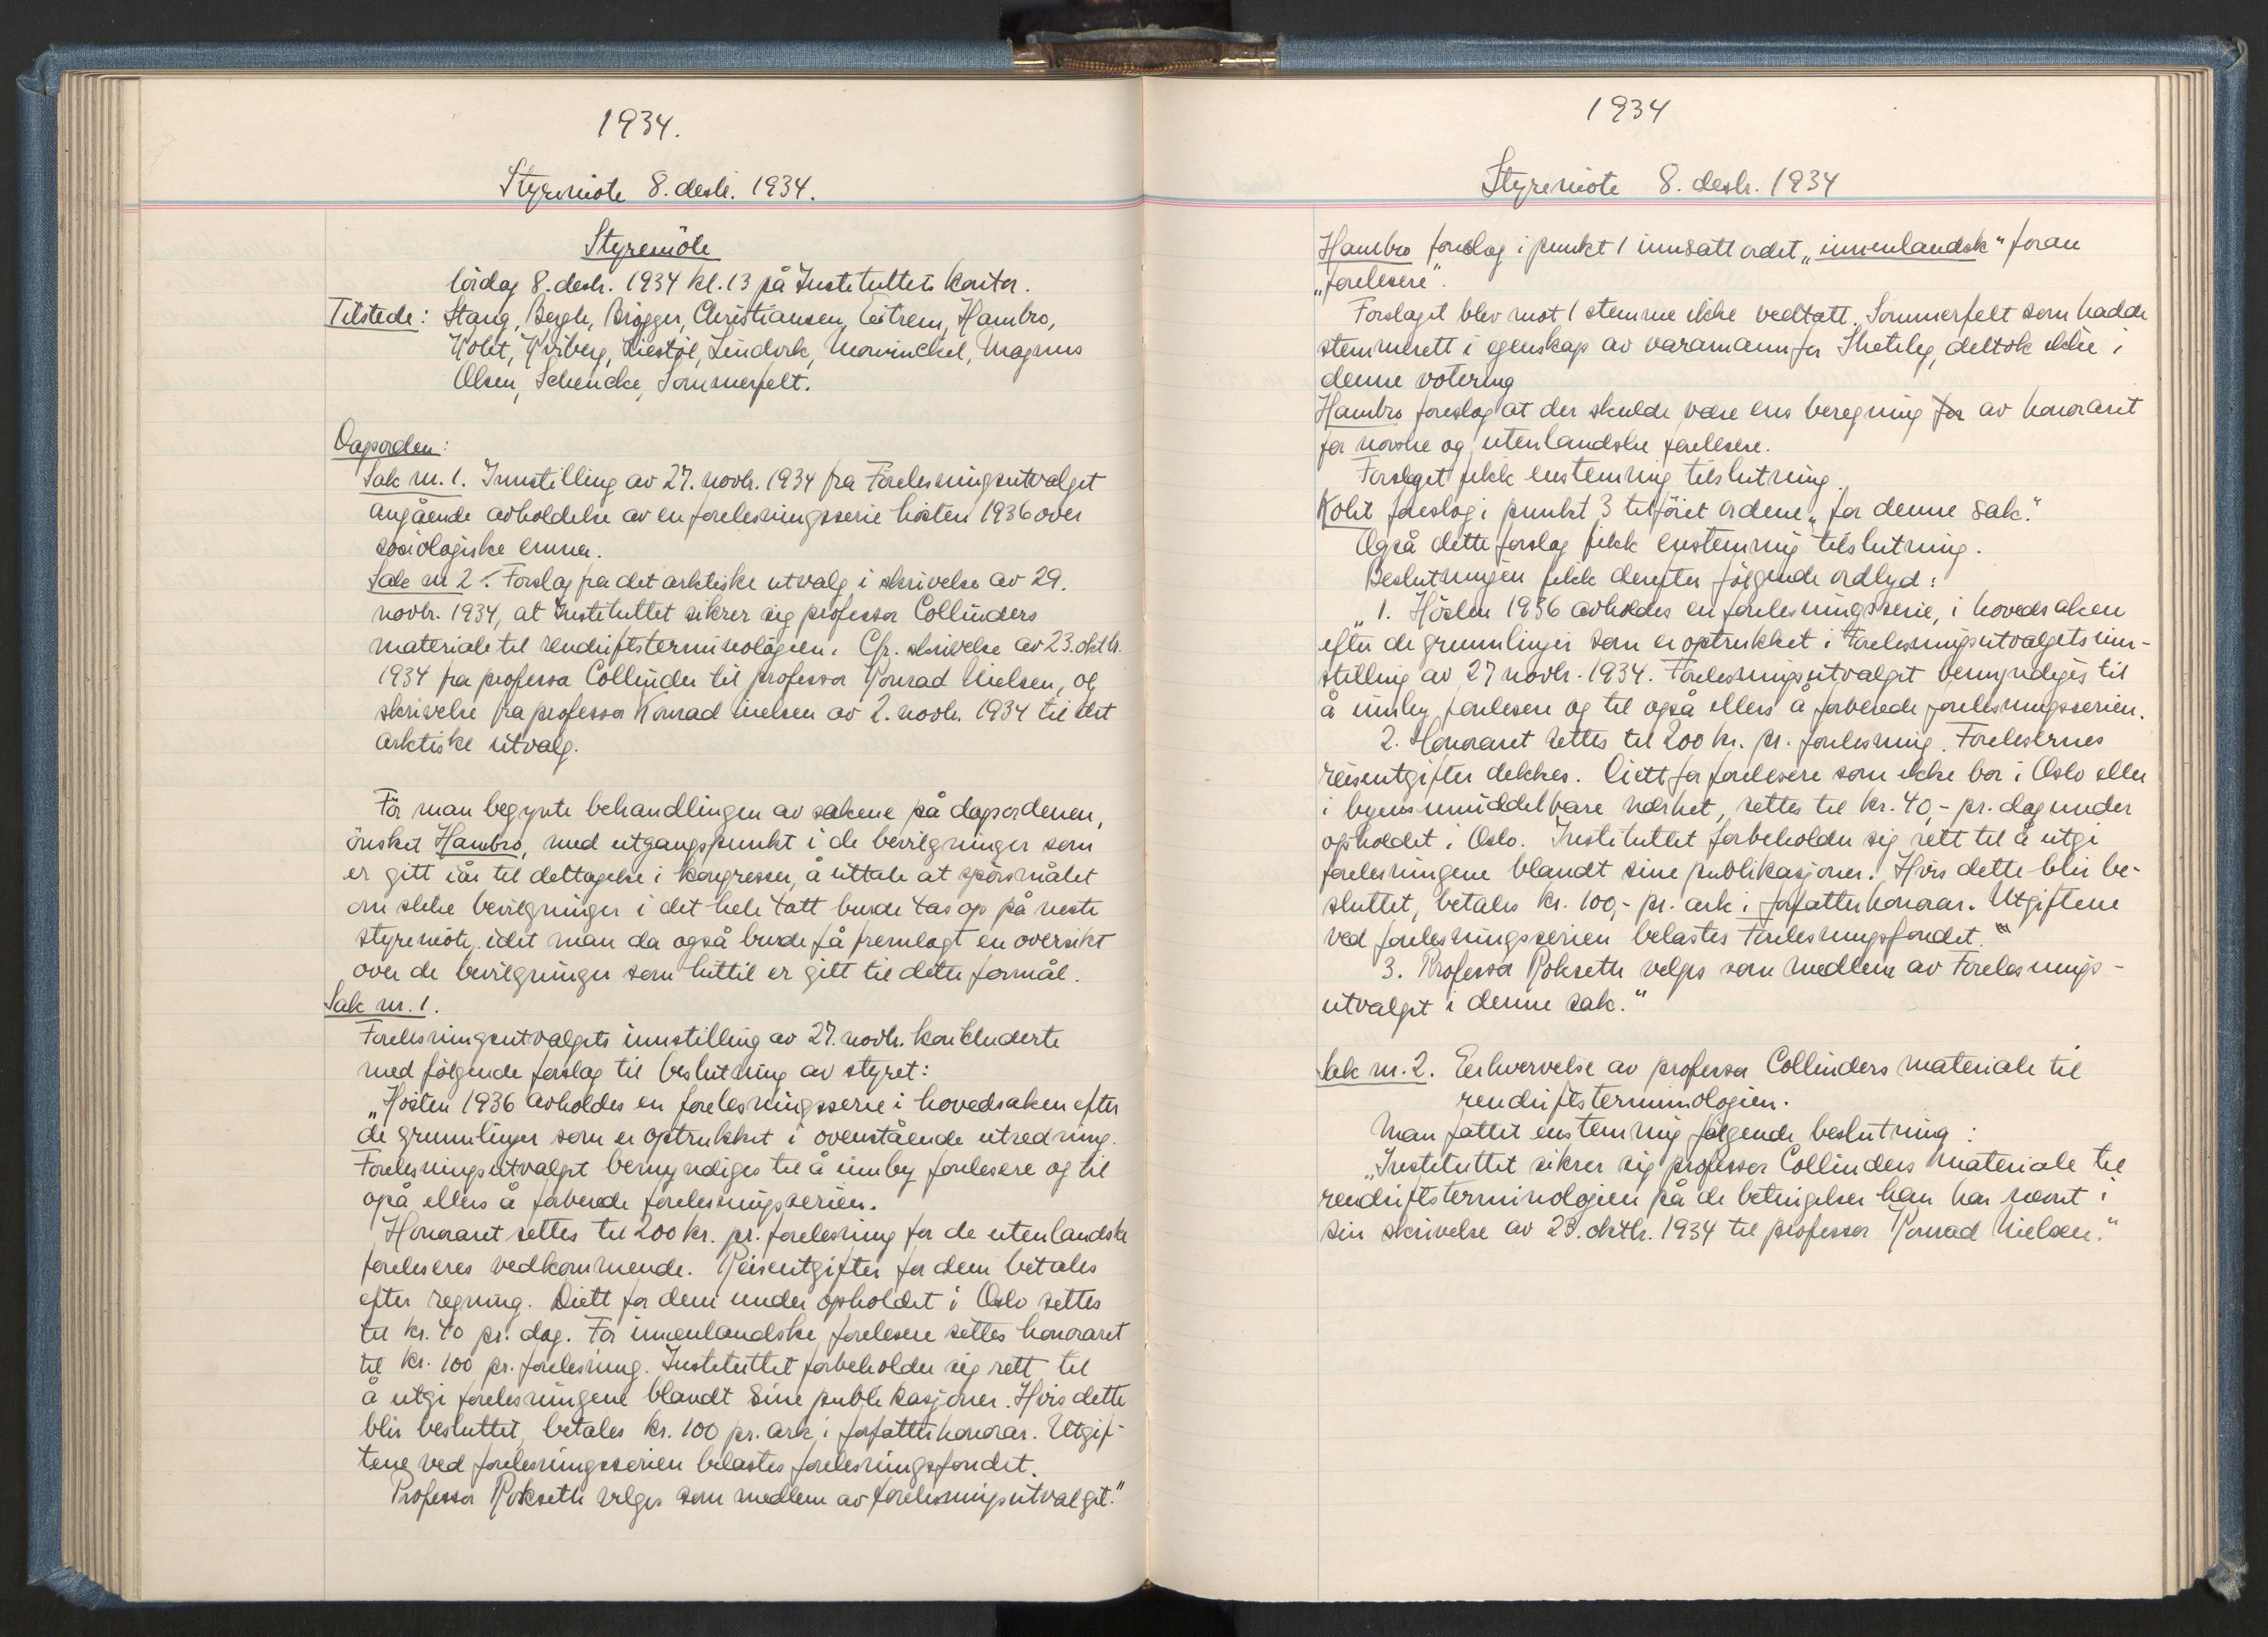 1934.
Styremöte 8. desbr. 1934.
Styremöte
lördag 8. desbr. 1934 kl. 13 på Instituttets kontor.
Tilstede: Stang, Bergh, Brøgger, Christiansen, Eitrem, Hambro,
Koht, Kviberg, Liestöl, Lindvik, Mowinckel, Magnus
Olsen, Schencke, Sommerfelt.
Dagsorden:
Sak nr. 1. Innstilling av 27. novbr. 1934 fra Forelesningsutvalget
angående avholdelse av en forelesningsserie hösten 1936 over
sociologiske emner.
Sak nr 2. Forslag fra det arktiske utvalg i skrivelse av 29.
novbr. 1934, at Instituttet sikrer sig professor Collinders
materiale til rendriftsterminologien. Cfr. skrivelse av 23. oktbr.
1934 fra professor Collinder til professor Konrad Nielsen, og
skrivelse fra professor Konrad Nielsen av 2. novbr. 1934 til det
arktiske utvalg.
För man begynte behandlingen av sakene på dagsordenen,
önsket Hambro, med utgangspunkt i de bevilgninger som
er gitt iår til deltagelse i kongresser, å uttale at spörsmålet
om slike bevilgninger i det hele tatt burde tas op på neste
styremöte, idet man da også burde få fremlagt en oversikt
over de bevilgninger som hittil er gitt til dette formål.
Sak nr. 1.
Forelesningsutvalgets innstilling av 27. novbr. konkluderte
med fölgende forslag til beslutning av styret:
„Hösten 1936 avholdes en forelesningsserie i hovedsaken efter
de grunnlinjer som er optrukket i ovenstående utredning.
Forelesningsutvalget bemyndiges til å innby forelesere og til
også ellers å forberede forelesningsserien.
Honoraret settes til 200 kr. pr. forelesning for de utenlandske
foreleseres vedkommende. Reiseutgifter for dem betales
efter regning. Diett for dem under opholdet i Oslo settes
til kr. 40 pr. dag. For innenlandske forelesere settes honoraret
til kr. 100 pr. forelesning. Instituttet forbeholder sig rett til
å utgi forelesningene blandt sine publikasjoner. Hvis dette
blir besluttet, betales kr. 100 pr. ark i forfatterhonorar. Utgif-
tene ved forelesningsserien belastes forelesningsfondet.
Professor Rokseth velges som medlem av forelesningsutvalget."
1934
Styremöte 8. desbr. 1934
Hambro foreslog i punkt 1 innsatt ordet „innenlandsk" foran
„forelesere".
Forslaget blev mot 1 stemme ikke vedtatt. Sommerfelt som hadde
stemmerett i egenskap av varamann for Shetelig, deltok ikke i
denne votering
Hambro foreslog at der skulde være ens beregning for av honoraret
for norske og utenlandske forelesere.
Forslaget fikk enstemmig tilslutning.
Koht foreslog i punkt 3 tilföiet ordene „for denne sak."
Også dette forslag fikk enstemmig tilslutning.
Beslutningen fikk derefter fölgende ordlyd:
„1. Hösten 1936 avholdes en forelesningsserie, i hovedsaken
efter de grunnlinjer som er optrukket i Forelesningsutvalgets inn-
stilling av 27 novbr. 1934. Forelesningsutvalget bemyndiges til
å innby forelesere og til også ellers å forberede forelesningsserien.
2. Honoraret settes til 200 kr. pr. forelesning. Forelesernes
reiseutgifter dekkes. Diett for forelesere som ikke bor i Oslo eller
i byens umiddelbare nærhet, settes til kr. 40,- pr. dag under
opholdet i Oslo. Instituttet forbeholder sig rett til å utgi
forelesningene blandt sine publikasjoner. Hvis dette blir be-
sluttet, betales kr. 100,- pr. ark i forfatterhonorar. Utgiftene
ved forelesningsserien belastes Forelesningsfondet."
3. Professor Rokseth velges som medlem av Forelesnings-
utvalget i denne sak."
Sak nr. 2. Erhvervelse av professor Collinders materiale til
rendriftsterminologien.
Man fattet enstemmig fölgende beslutning:
„Instituttet sikrer sig professor Collinders materiale til
rendriftsterminologien på de betingelser han har nevnt i
sin skrivelse av 23. oktbr. 1934 til professor Konrad Nielsen."